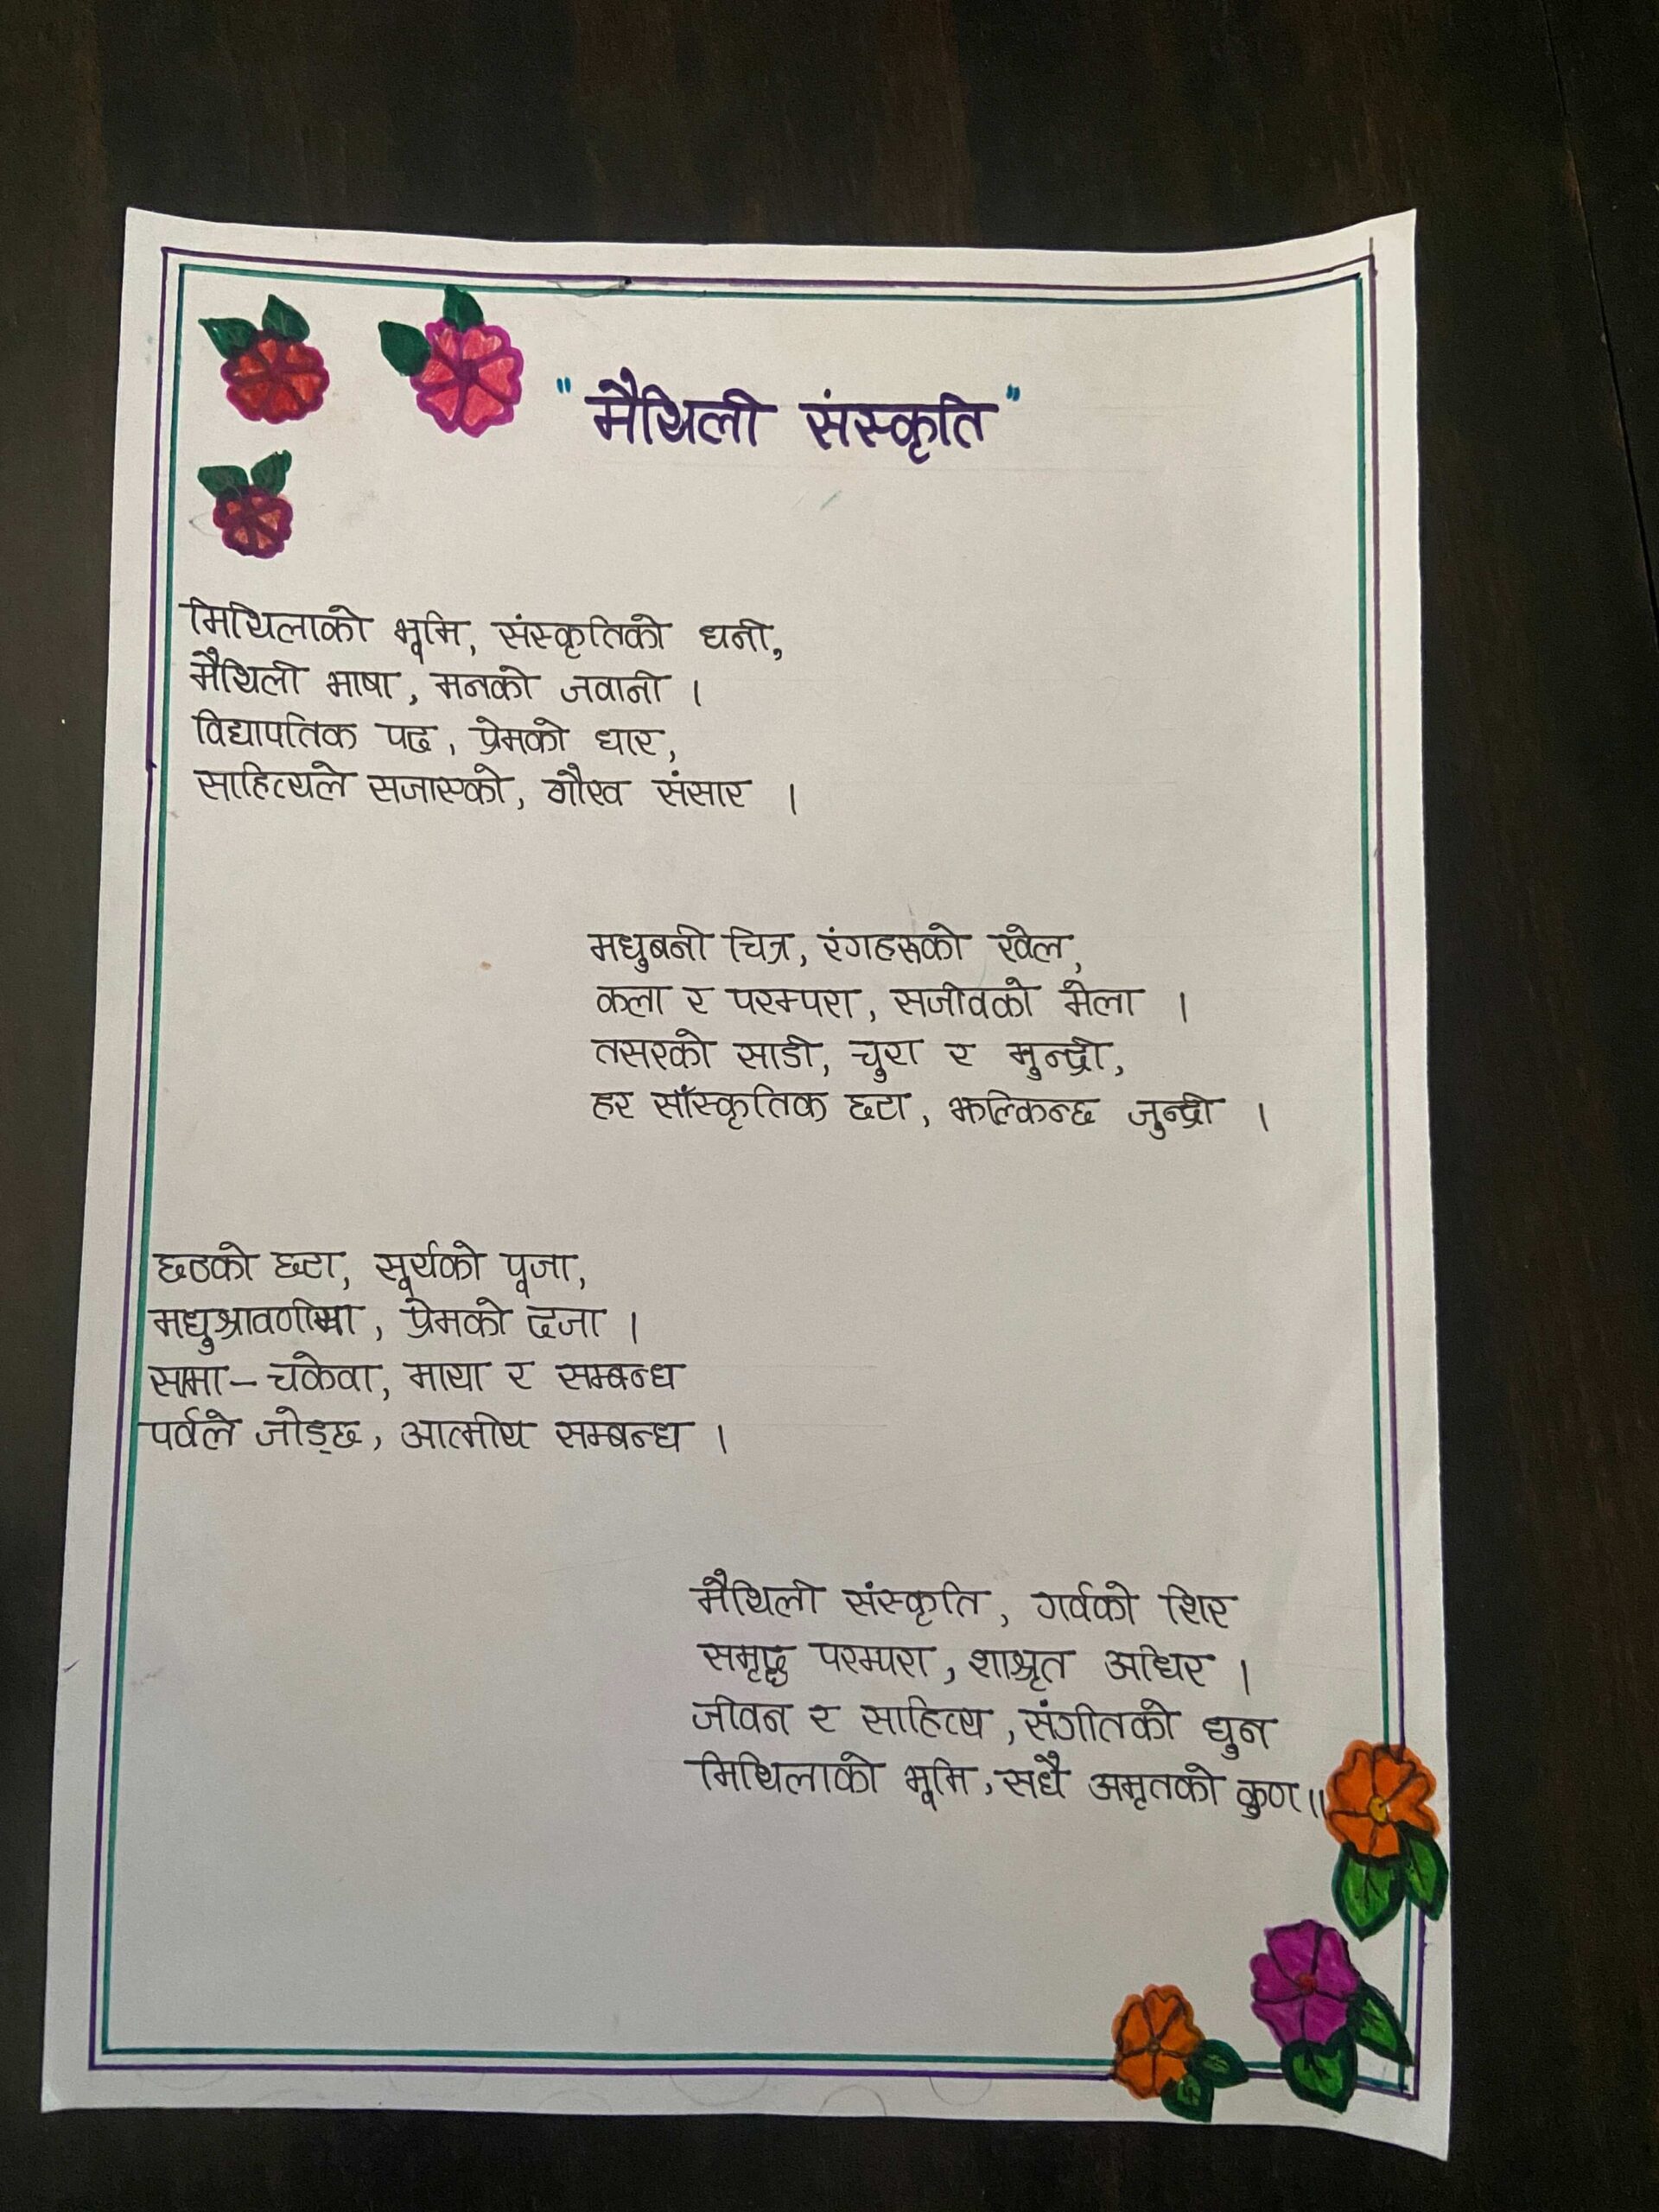 "मैथिली संस्कृति"
मिथिलाको भूमि, संस्कृतिको धनी,
मैथिली भाषा, मनको जवानी ।
विद्यापतिक पद, प्रेमको धार,
साहित्यले सजाएको, गौरव संसार ।
मधुबनी चित्र, रंगहरूको खेल,
कला र परम्परा, सजीवको मेला ।
तसरको साडी, चुरा र मुन्द्री,
हर साँस्कृतिक छटा, झल्किन्छ जुन्द्री ।
छठको छटा, सूर्यको पूजा,
मधुश्रावणीमा, प्रेमको दजा ।
सामा-चकेवा, माया र सम्बन्ध
पर्वले जोड्छ, आत्मीय सम्बन्ध ।
मैथिली संस्कृति, गर्वको शिर
समृद्ध परम्परा, शाश्वृत अधिर ।
जीवन र साहित्य, संगीतको धुन
मिथिलाको भूमि, सधै अमृतको कुण ॥